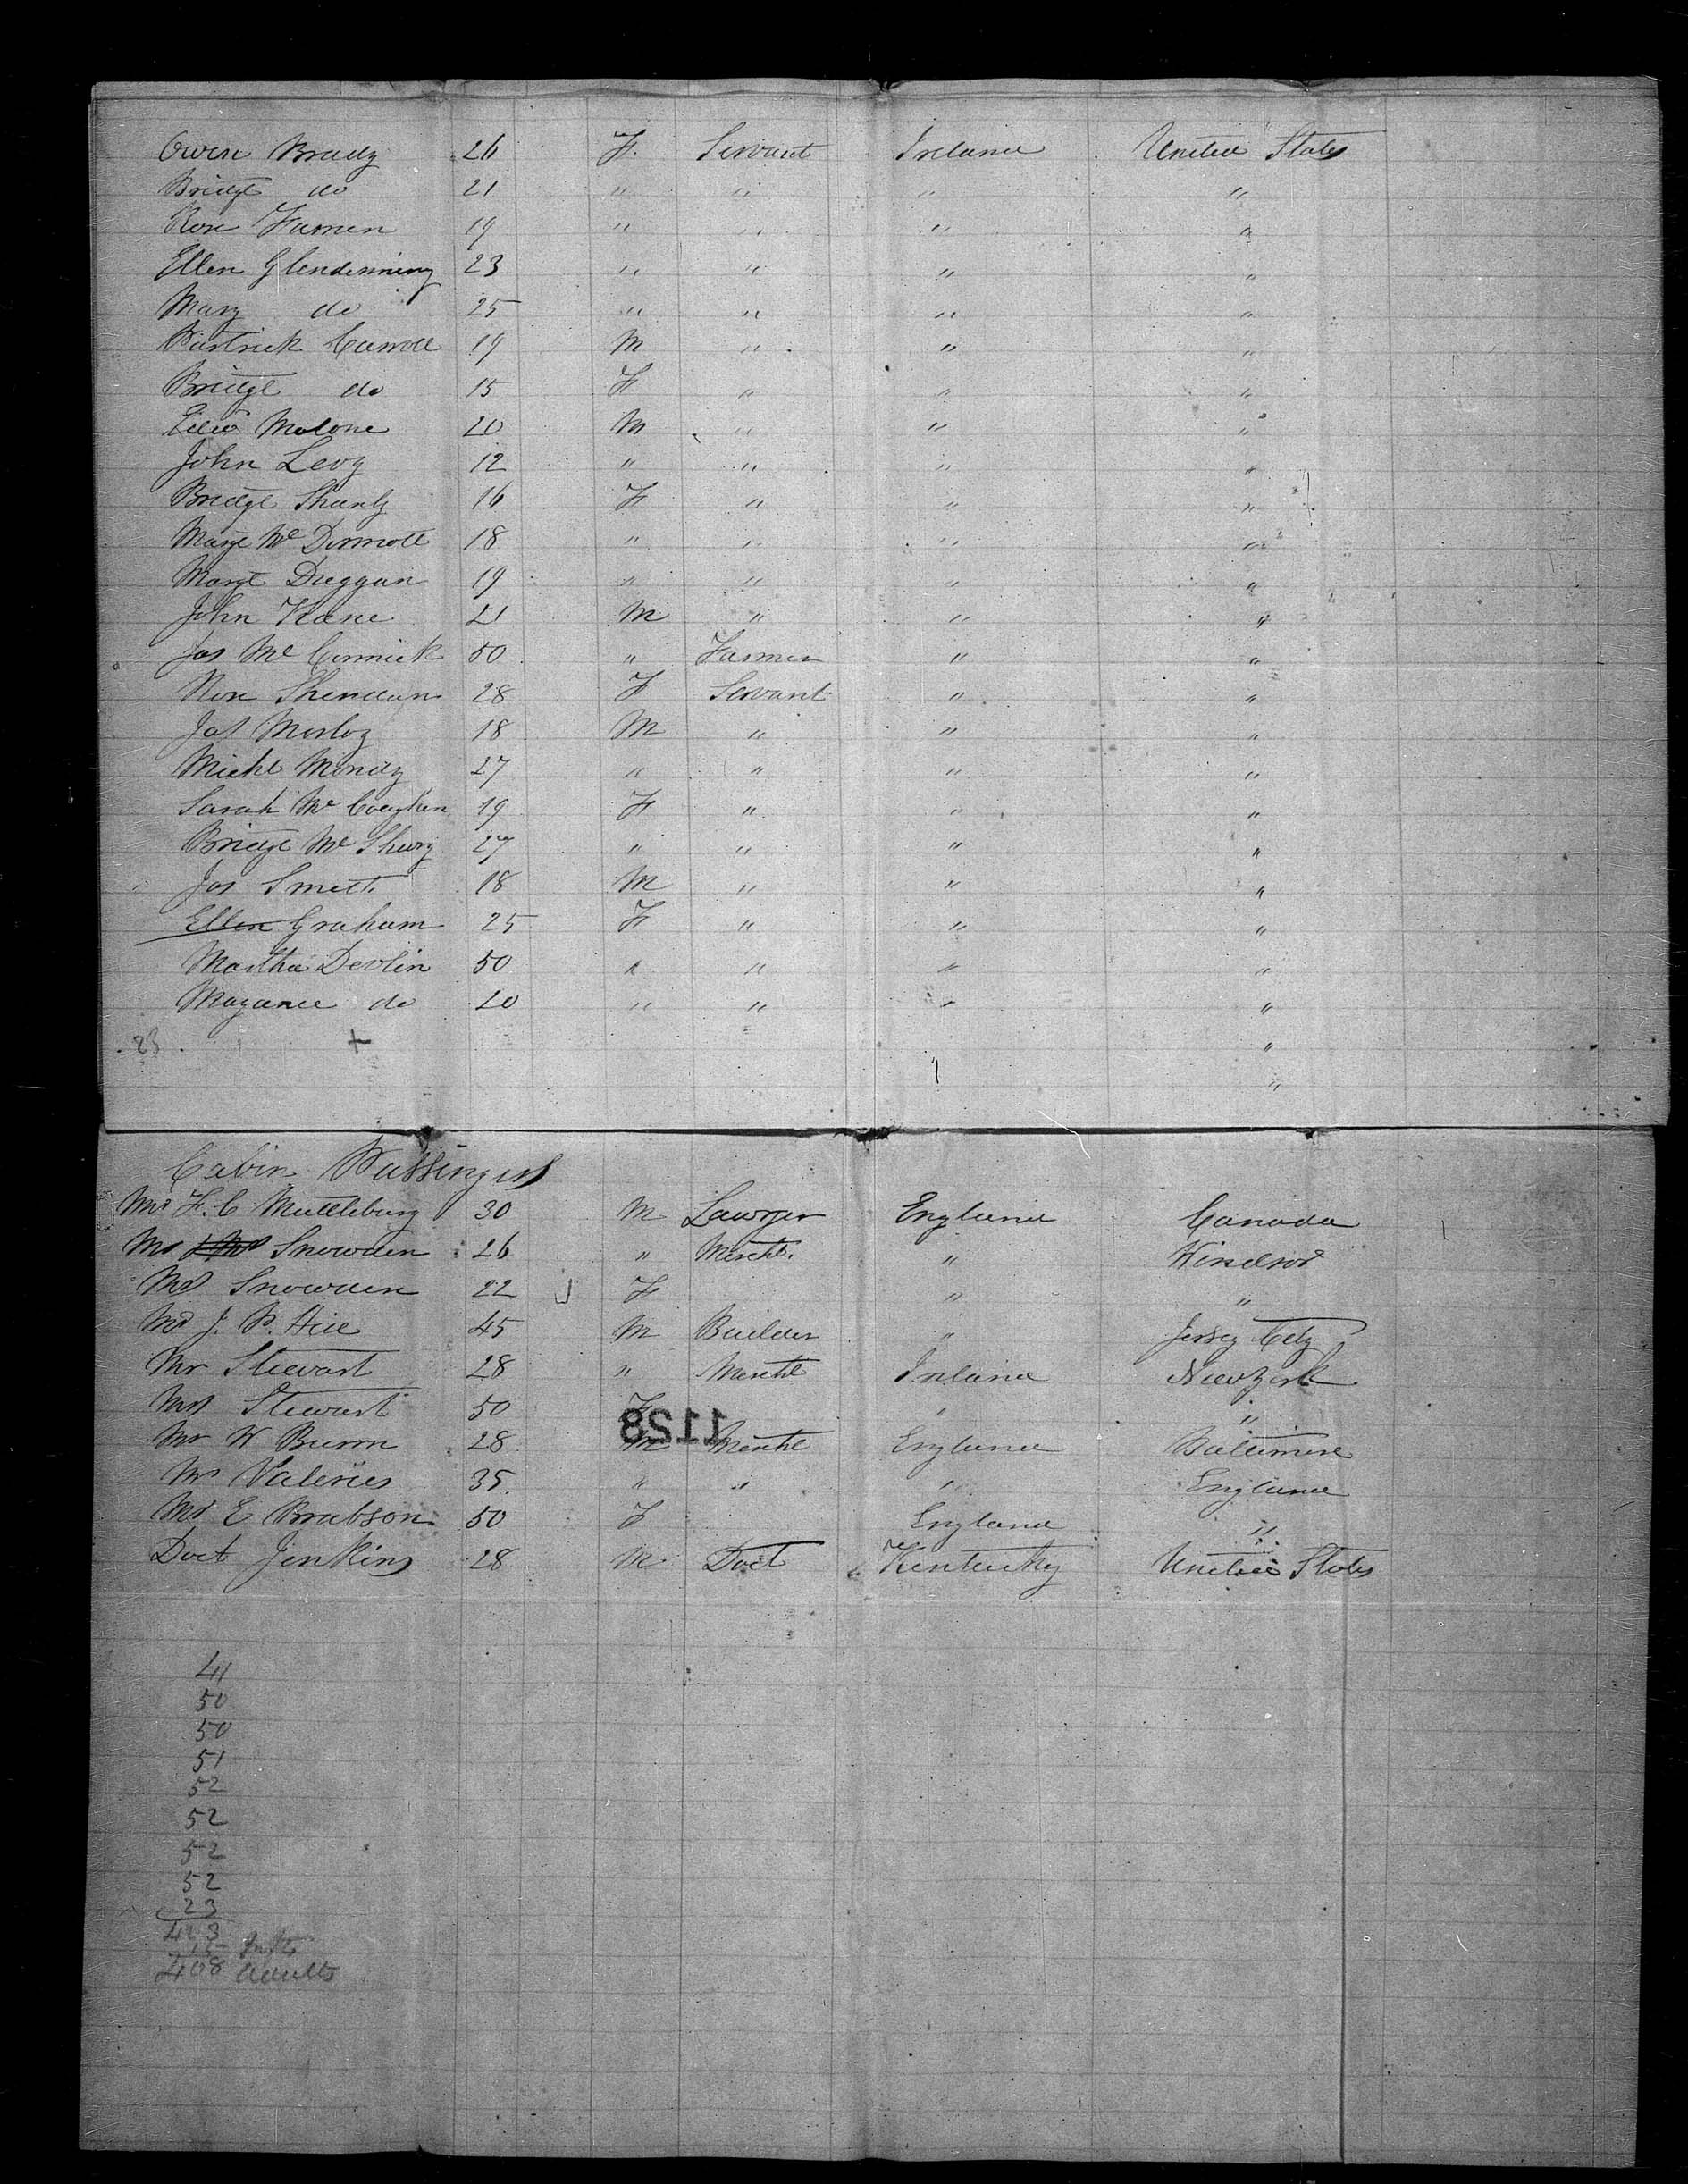 Owen Brady 26 F. Servant Ireland United States
Bridgt do 21 " " " "
Rose Farren 19 " " " "
Ellen Glendinning 23 " " " "
Mary do 25 " " " "
Patrick Carroll 19 M " " "
Bridgt do 15 F " " "
Malone 20 M " " "
John Levy 12 " " " "
Bridgt 16 F " " "
Margt Mc Dermott 18 " " " "
Margt Duggan 19 " " " "
John Kane 21 M " " "
Jas Mc Cormick 50 " Farmer " "
Rose Sheridan 28 F Servant " "
Jas 18 M " " "
Michl 27 " " " "
Sarah Mc 19 F " " "
Bridgt Mc 27 " " " "
Jas Smith 18 M " " "
Ellen Graham 25 F " " "
Martha Devlin 50 " " " "
do 20 " " " "
23 + "
"
Cabin Passengers
Mr F. C Muttlebury 30 M Lawyer England Canada
Mr Snowden 26 " Mercht. " Windsor
Mrs Snowden 22 F " "
Mr J. P. Hill 45 M Builder " Jersey City
Mr Stewart 28 " Mercht Ireland New York
Mrs Stewart 50 F " "
1128
Mr W Burrn 28 M Mercht England Baltimore
Mr Valerius 35. " " " England
Mrs E Brabson 50 F England "
Doct Jenkins 28 M Doct Kentucky United States
41
50
50
51
52
52
52
52
23
423
15 Infts
408 Adults